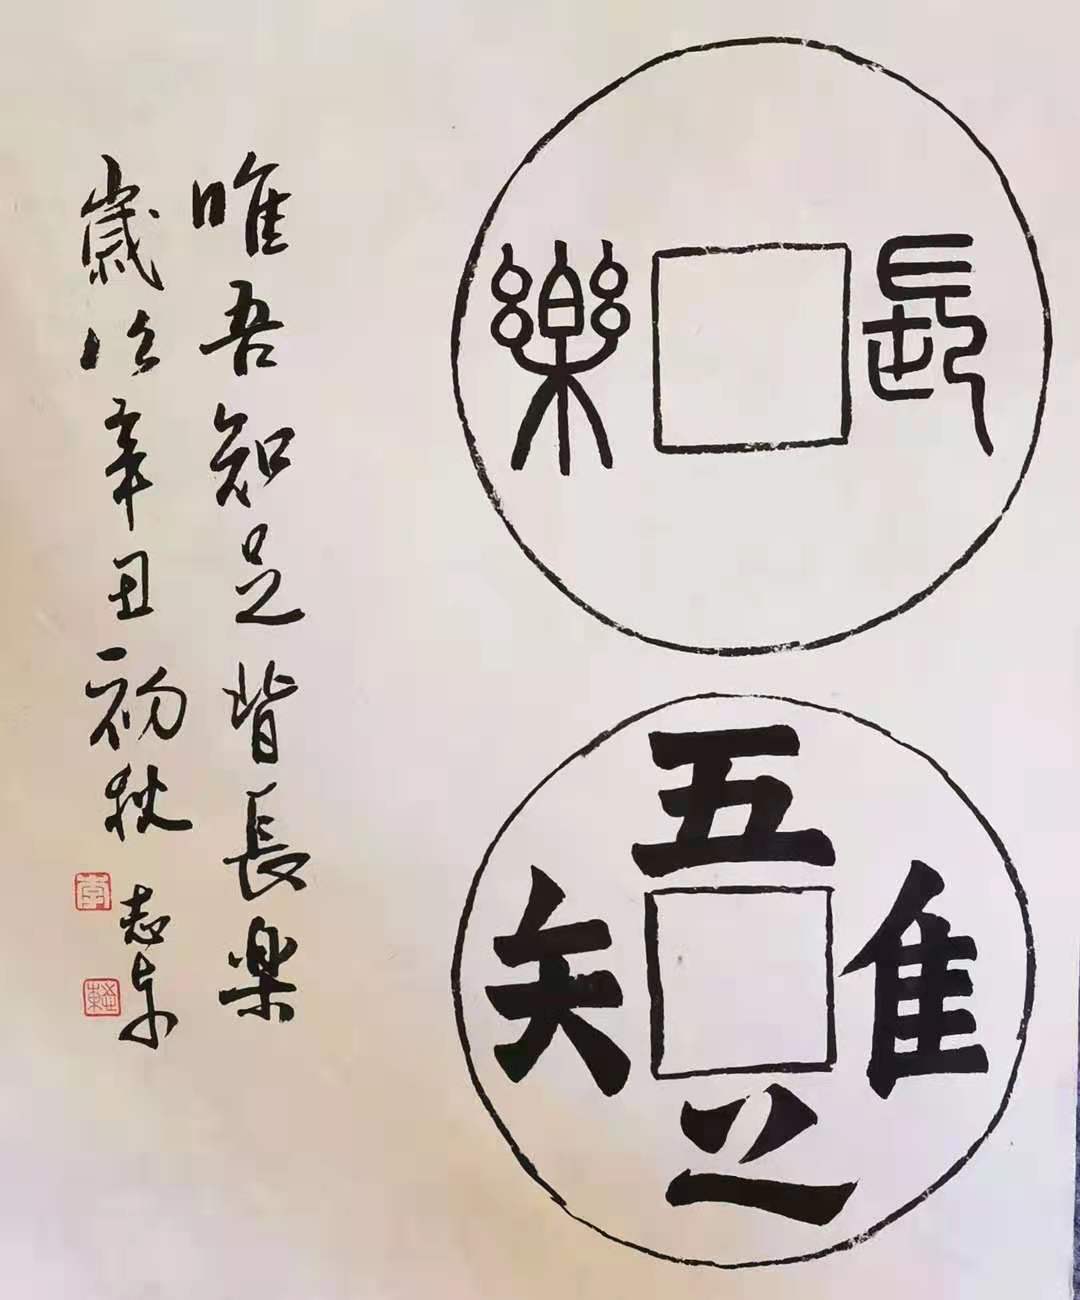 長樂
五
隹
矢
唯吾知足皆長樂
歲次辛丑初秋
志东
李